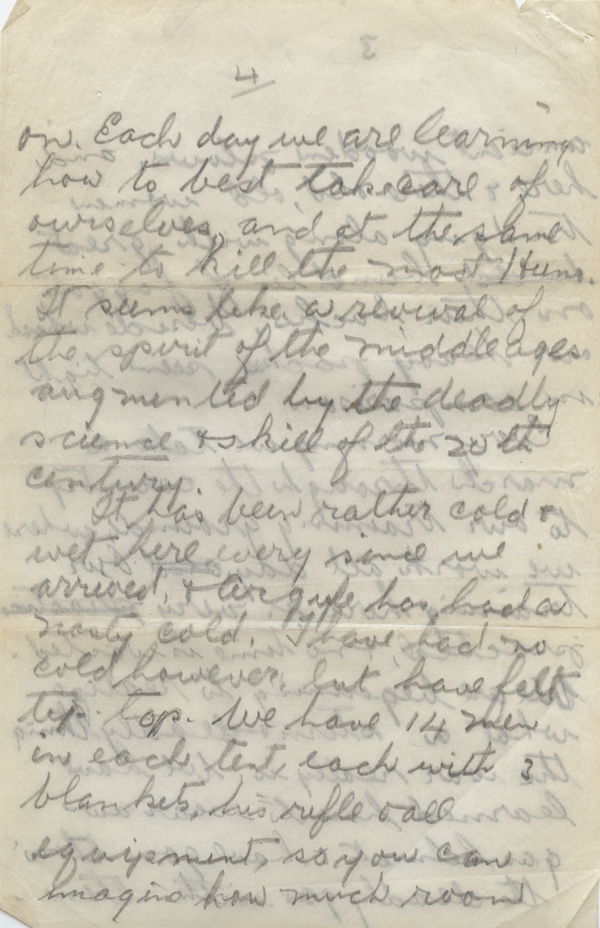 4
on. Each day we are learning
how to best take care of
ourselves, and at the same
time to kill the most Huns.
It seems like a revival of
the spirit of the middle ages
augmented by the deadly
science & skill of the 20th
century.
It has been rather cold &
wet here every since we
arrived, & Argyle has had a
nasty cold. I have had no
cold however, but have felt
tip-top. We have 14 men
in each tent each with 3
blankets, his rifle & all
equipment, so you can
imagine how much room